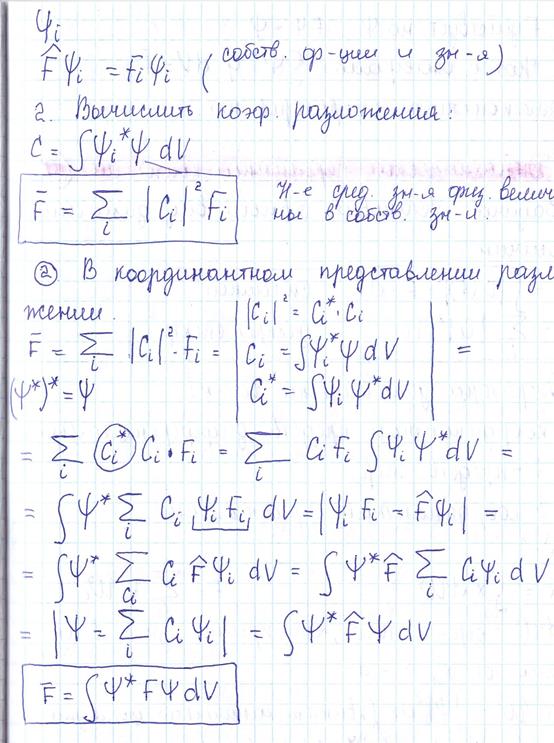 Ψi
F̂Ψi = FiΨi (собств. ф-ции и зн-я)
2. Вычислить коэф. разложения:
C = ∫Ψi*Ψ dV
F̄ = Σi |Ci|² Fi
Н-е сред. зн-я физ. величи
ны в собств. зн-и.
② В координантном представлении разл
жении.
F̄ = Σi |Ci|²·Fi = | |Ci|² = Ci*·Ci
Ci = ∫Ψi*Ψ dV
Ci* = ∫Ψi Ψ* dV | =
(Ψ*)* = Ψ
= Σi Ci* Ci·Fi = Σi Ci Fi ∫Ψi Ψ* dV =
= ∫Ψ* Σi Ci Ψi Fi dV = |Ψi Fi = F̂Ψi| =
= ∫Ψ* Σci Ci F̂ Ψi dV = ∫Ψ* F̂ Σi CiΨi dV
= |Ψ = Σi Ci Ψi| = ∫Ψ* F̂ Ψ dV
F̄ = ∫Ψ* FΨ dV